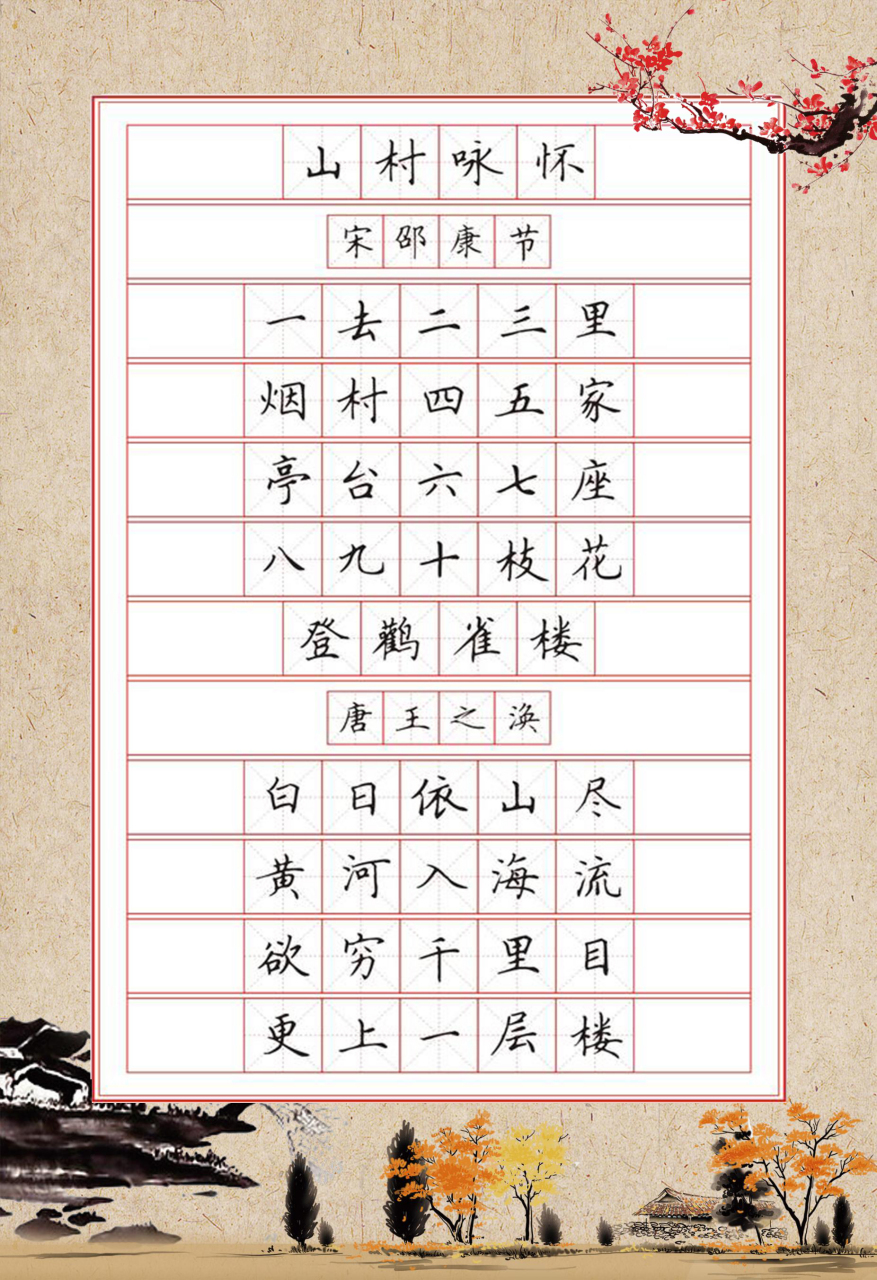 山村咏怀
宋邵康节
一去二三里
烟村四五家
亭台六七座
八九十枝花
登鹳雀楼
唐王之涣
白日依山尽
黄河入海流
欲穷千里目
更上一层楼